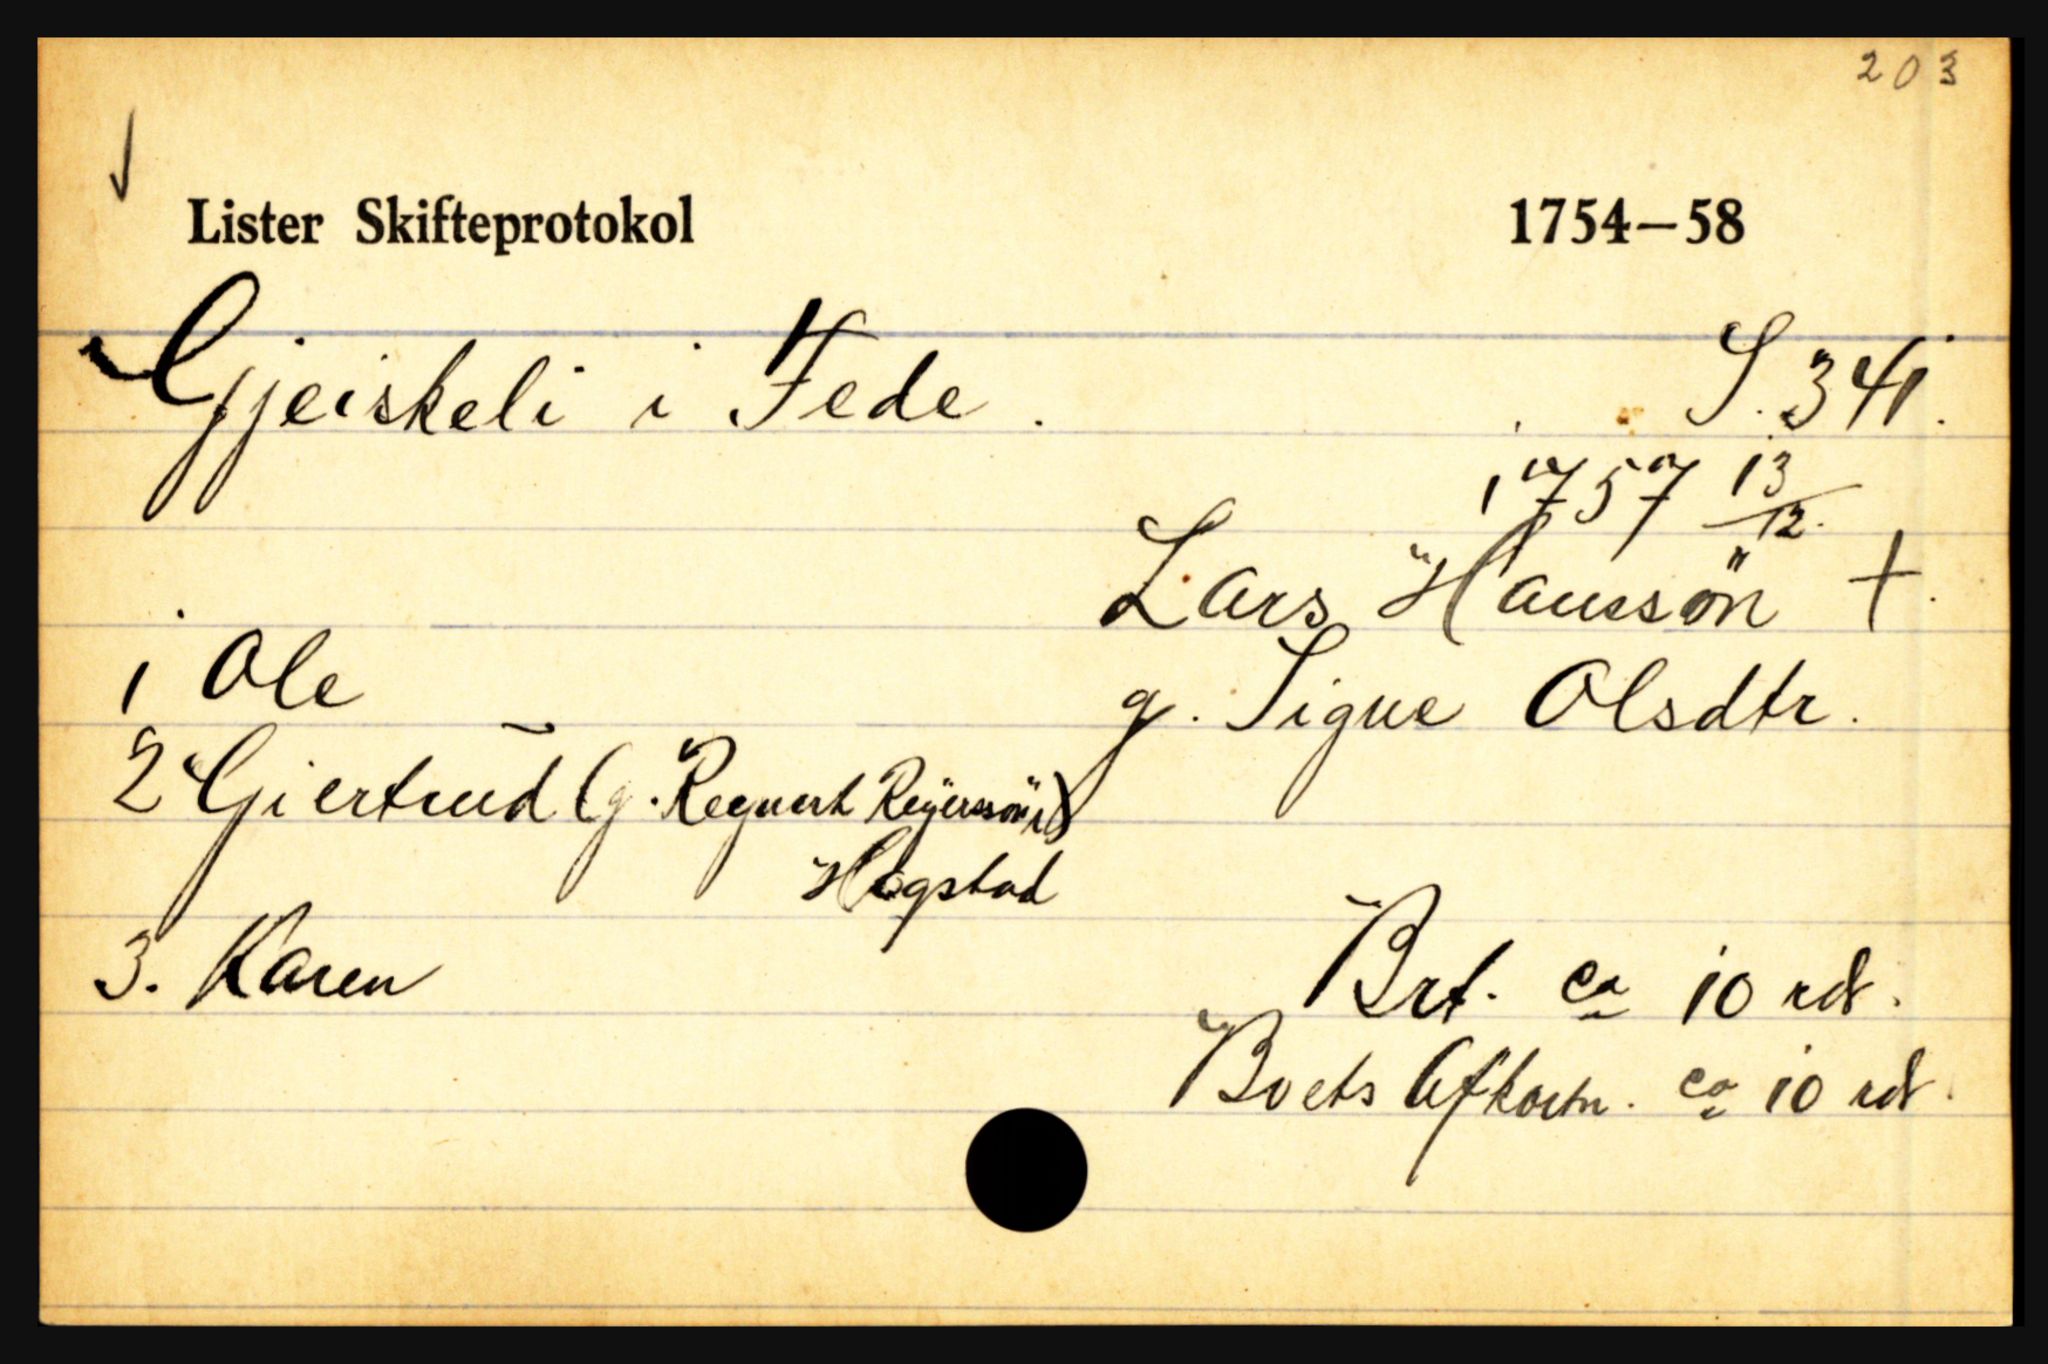 203
Lister Skifteprotokol 1754–58
Gjeiskeli i Fede. S. 341.
1757 13/12.
Lars Hanssön +.
1 Ole g. Signe Olsdtr.
2 Giertrud (g. Regnert Reÿerssön)
Hogstad
3. Karen Brt. ca 10 rd.
Boets Afkortn. ca 10 rd.